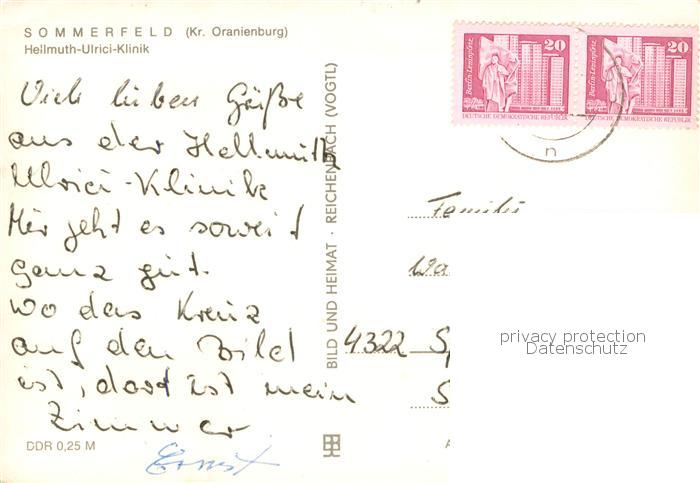 SOMMERFELD (Kr. Oranienburg)
Hellmuth-Ulrici-Klinik
Viele lieben Grüße
aus der Hellmuth
Ulrici-Klinik
Mir geht es soweit
ganz gut.
Wo das Kreuz
auf den Bild
ist, dort ist mein
Zimmer
Ernst
DDR 0,25 M
BILD UND HEIMAT · REICHENBACH (VOGTL)
Berlin-Leninplatz
20
DEUTSCHE DEMOKRATISCHE REPUBLIK
Berlin-Leninplatz
20
DEUTSCHE DEMOKRATISCHE REPUBLIK
n
Familie
4322
privacy protection
Datenschutz